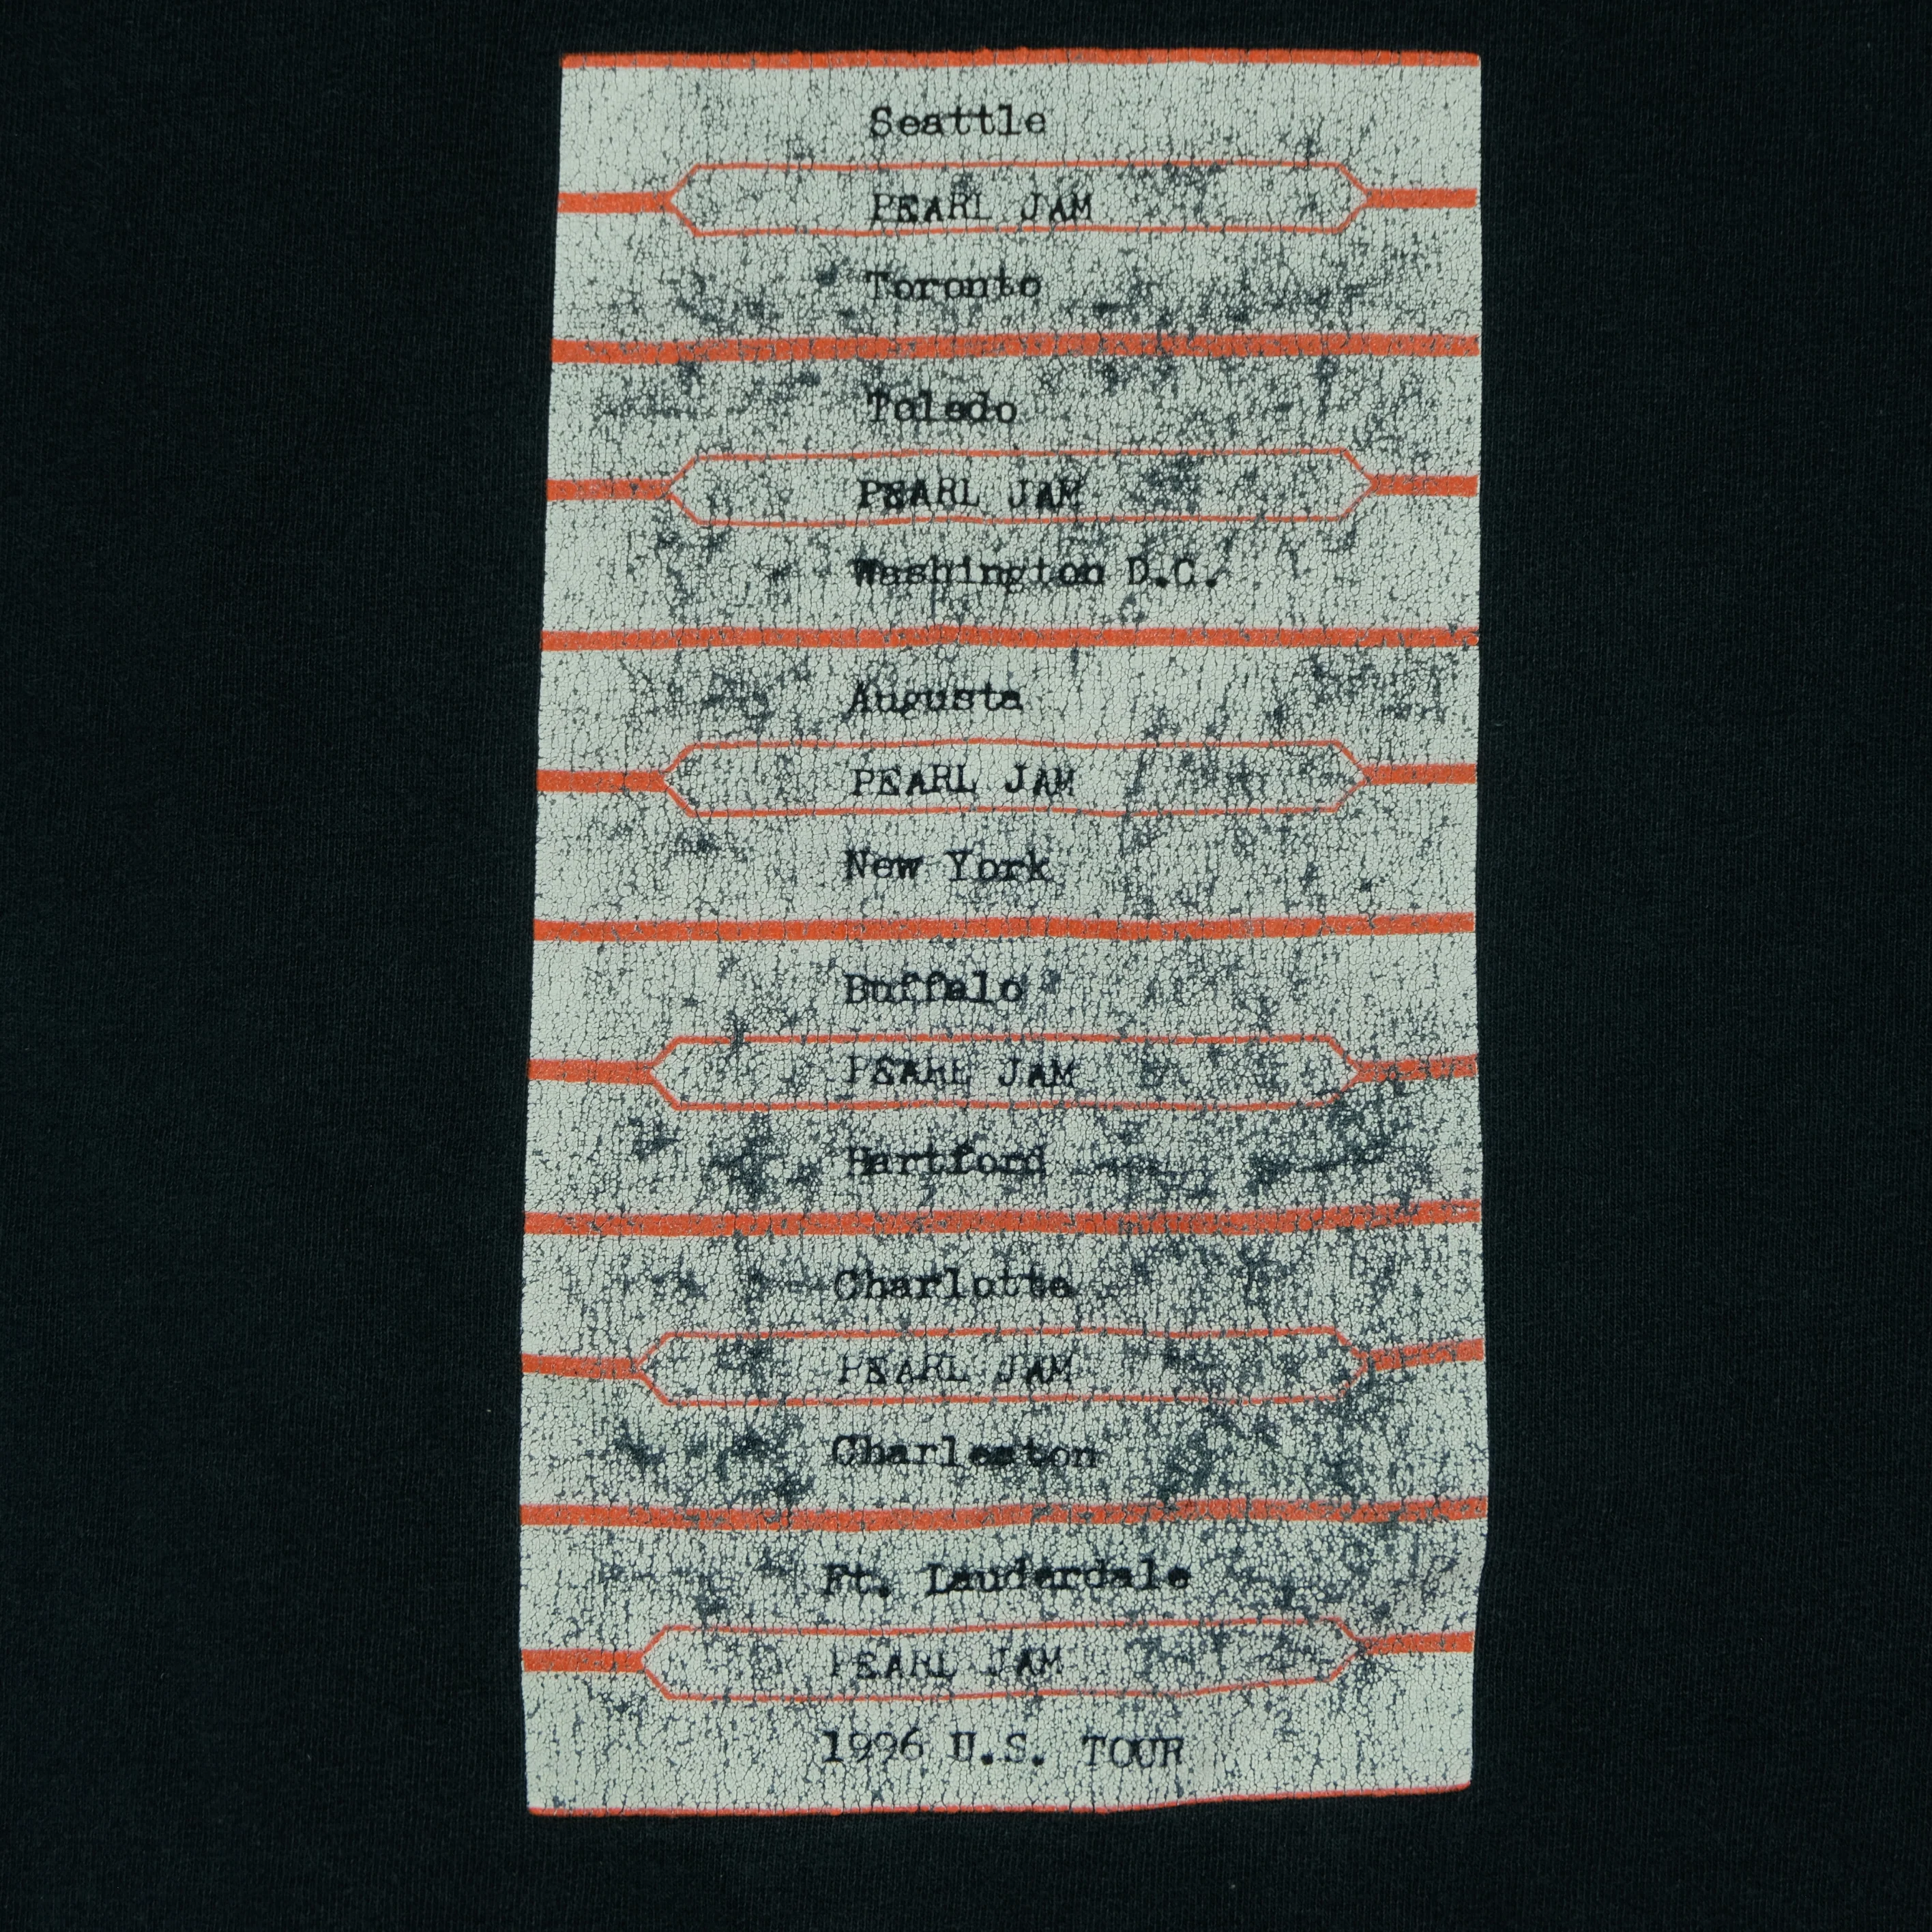 Seattle
PEARL JAM
Toronto
Toledo
PEARL JAM
Washington D.C.
Augusta
PEARL JAM
New York
Buffalo
PEARL JAM
Hartford
Charlotte
PEARL JAM
Charleston
Ft. Lauderdale
PEARL JAM
1996 U.S. TOUR